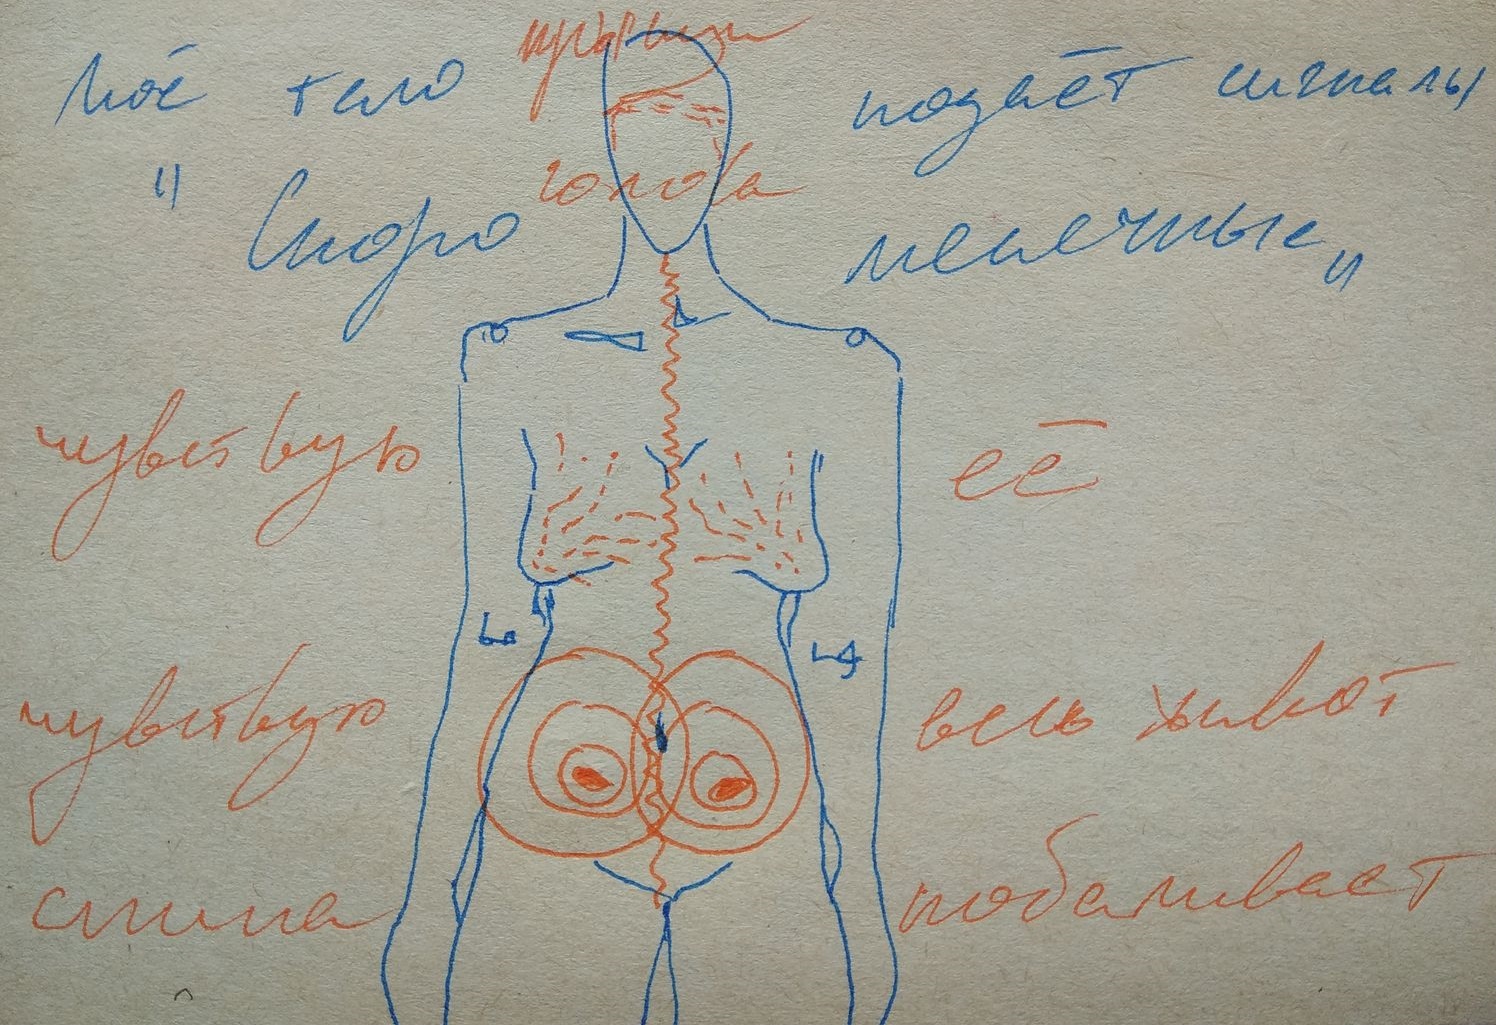 прыщи
Моё тело подаёт сигналы
голова
"Скоро месячные"
чувствую её
чувствую весь живот
спина побаливает